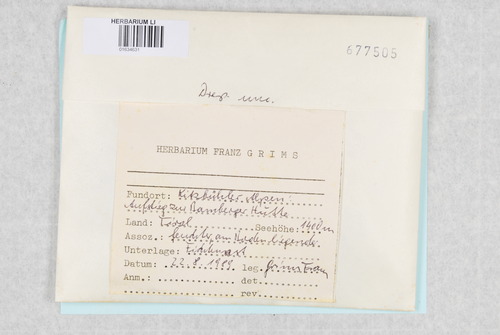 HERBARIUM LI
677505
Drep. unc.
HERBARIUM FRANZ GRIMS
Fundort: Kitzbühler Alpen:
Aufstieg zur Bamberger Hütte
Land: Tirol Seehöhe: 1400 m
Assoz.: am Boden liegender
Unterlage:
Datum: 22.8.1979 leg. Grims Franz
Anm.: det.
rev.